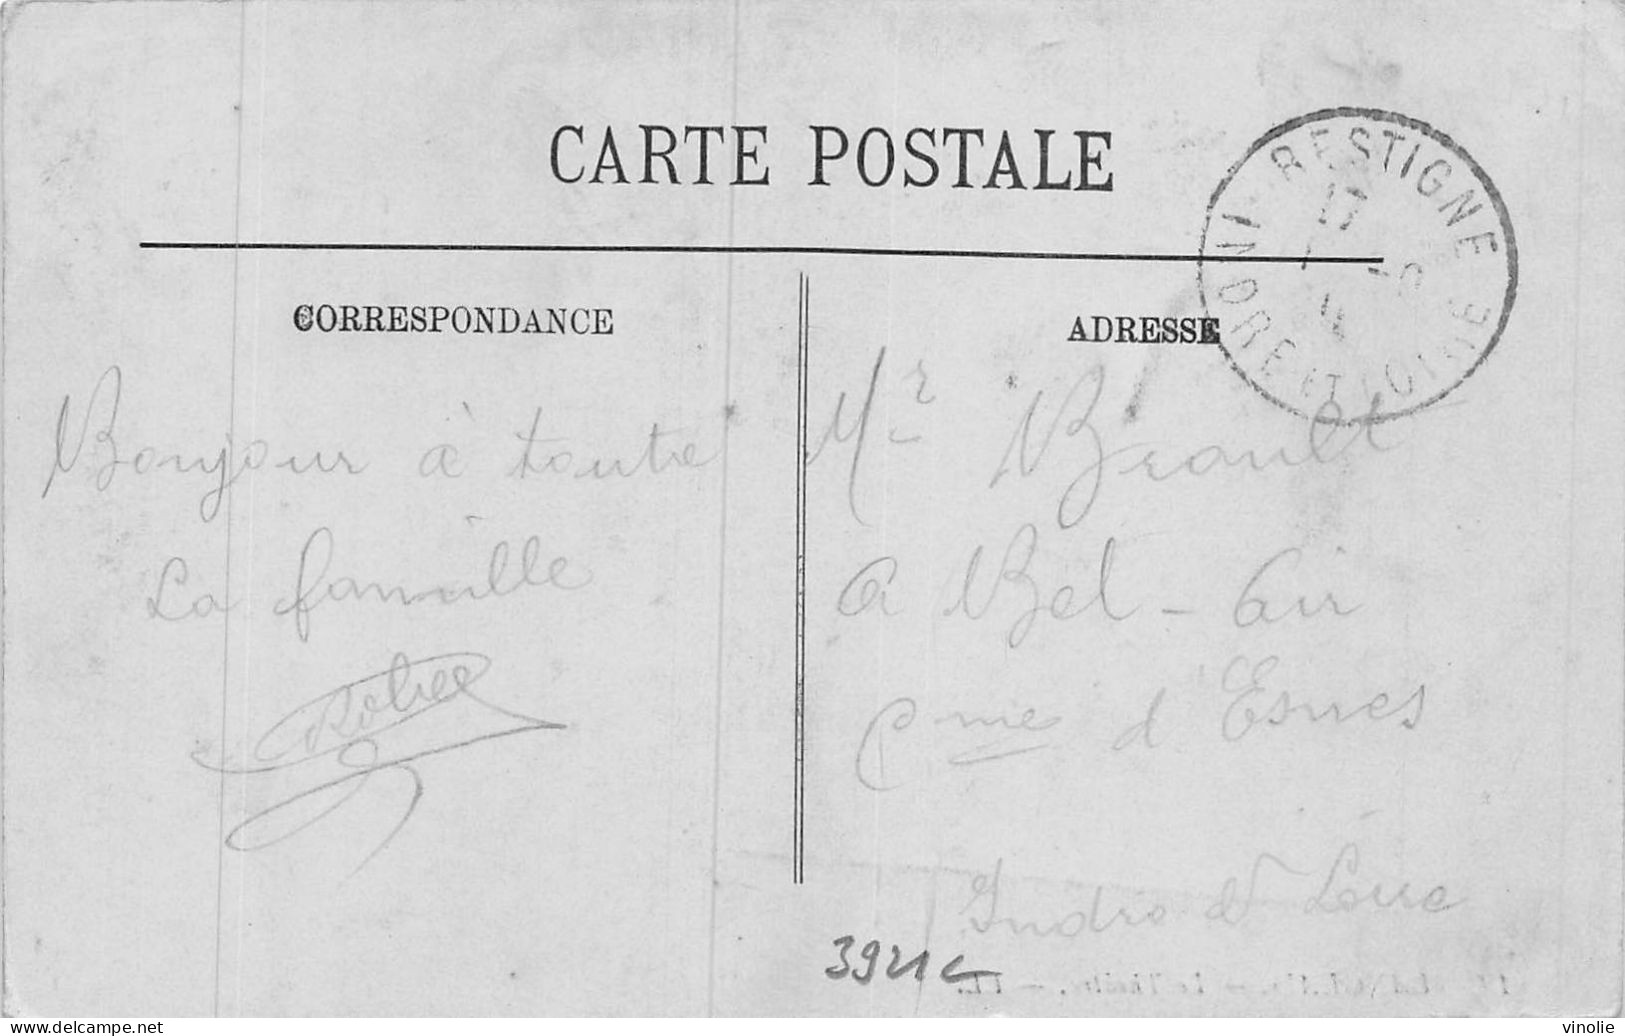 CARTE POSTALE
RESTIGNE
17
INDRE ET LOIRE
CORRESPONDANCE
ADRESSE
Bonjour à toute
La famille
Mr Brault
a Bel-air
Cme d'Esvres
Indre et Loire
3921c
delcampe.net
vinolie